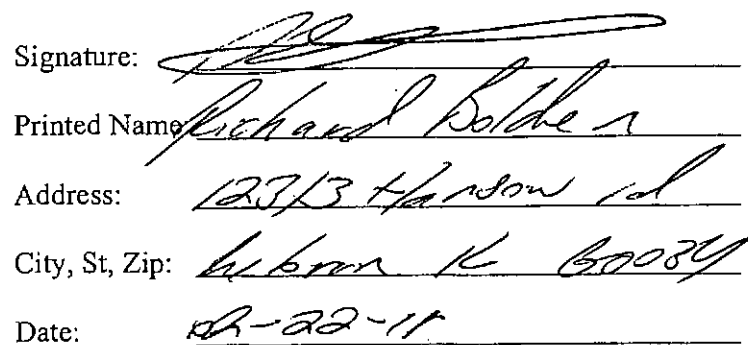 Signature:
Printed Name Richard Bolden
Address: 12313 Hanson rd
City, St, Zip: Hebron Il 60034
Date: -22-11